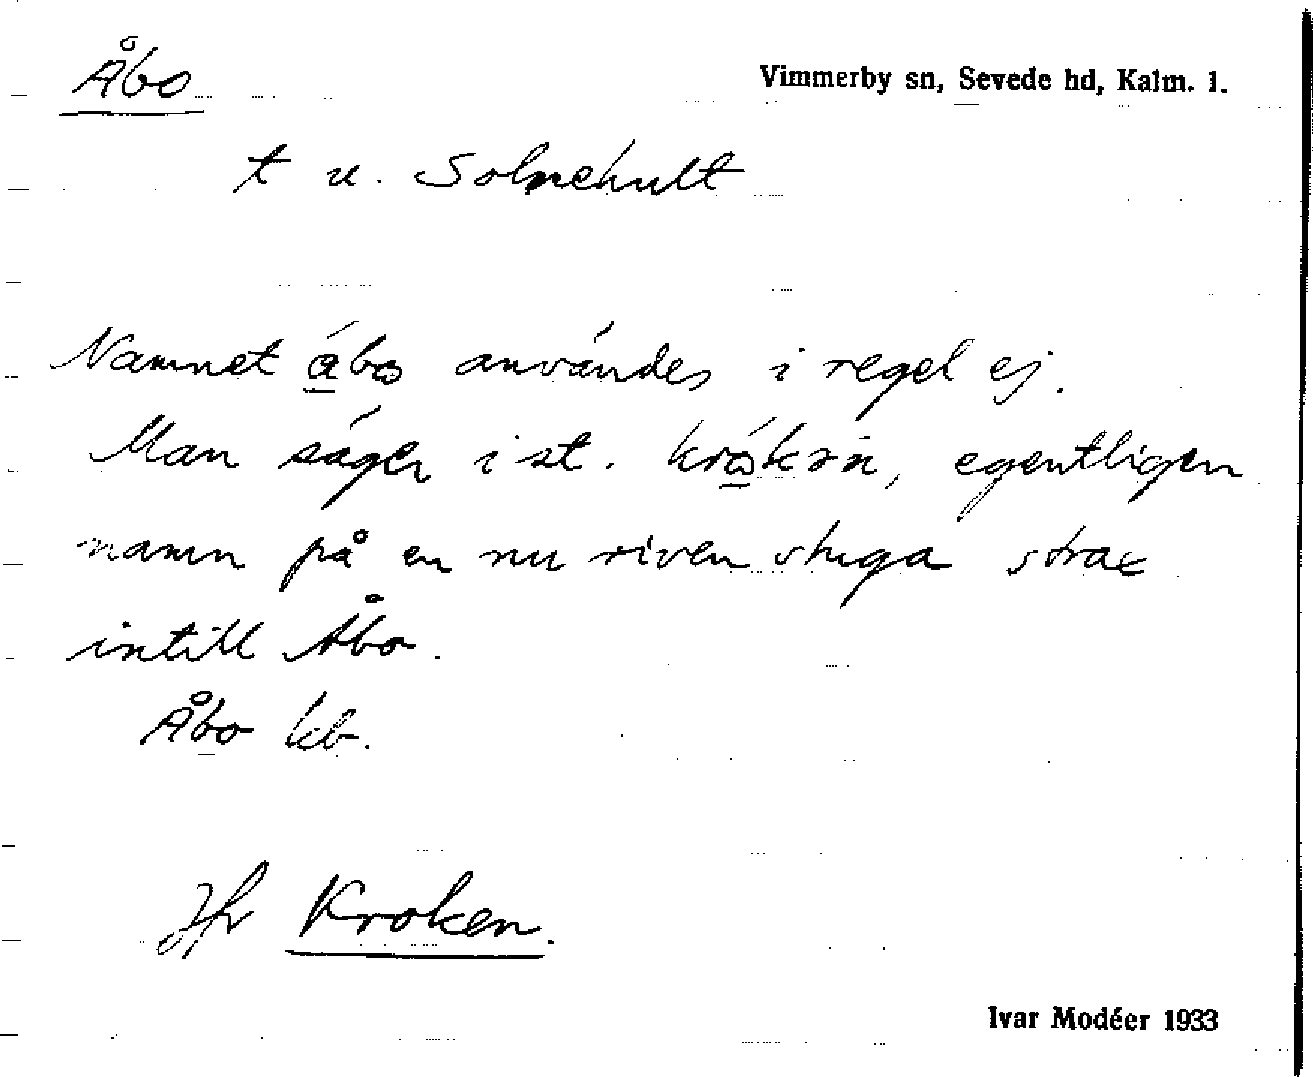 Åbo
Vimmerby sn, Sevede hd, Kalm. l.
t u. Solnehult
Namnet åbo användes i regel ej.
Man säger i st. , egentligen
namn på en nu riven stuga strax
intill Åbo.
Åbo kb.
Jfr Kroken.
Ivar Modéer 1933